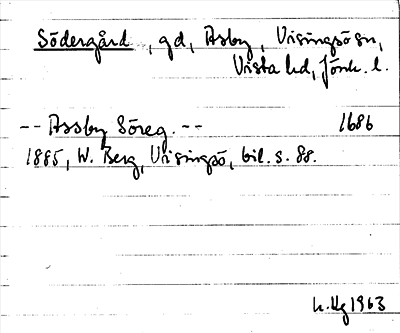 Södergård, gd, Asby, Visingsö sn,
Vista hd, Jönk. l.
-- Assby Söreg. -- 1686
1885, W. Berg, Visingsö, bil. s. 88.
1963